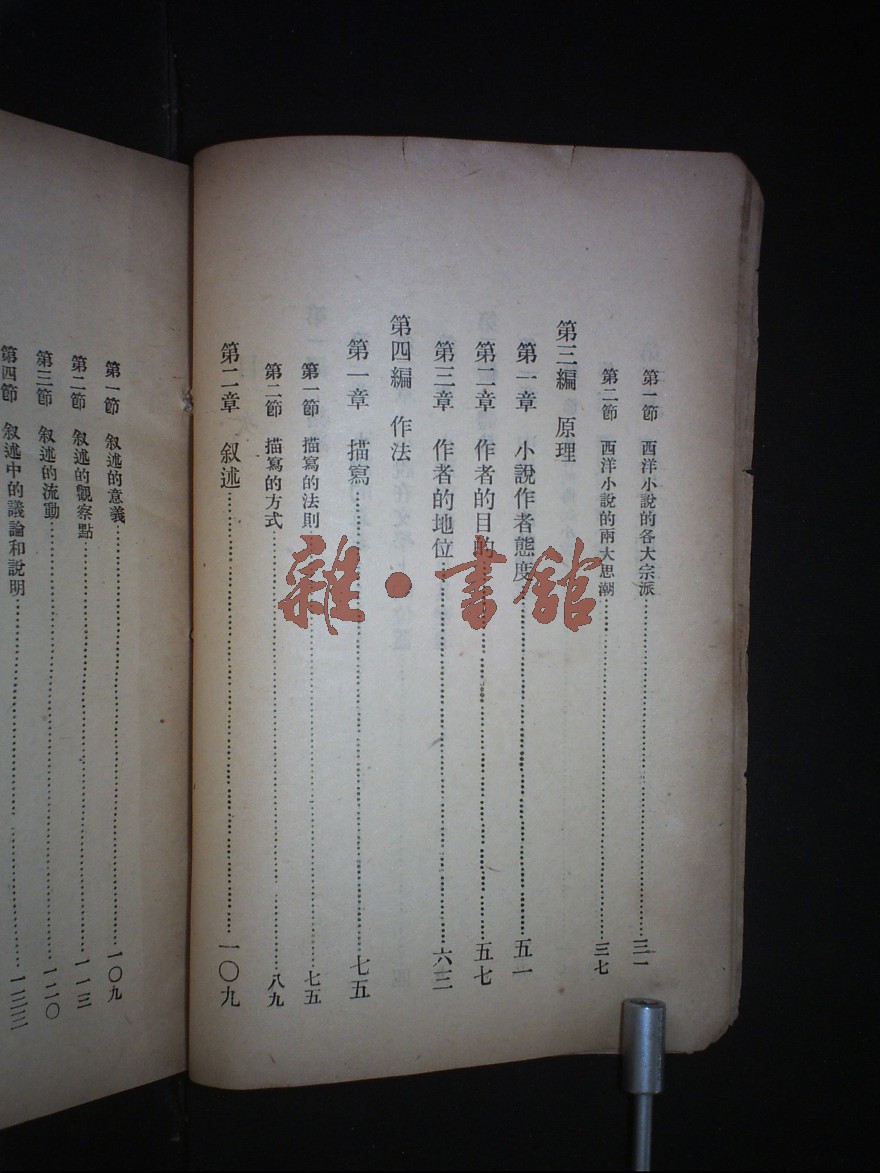 第一節 西洋小說的各大宗派……三一
第二節 西洋小說的兩大思潮……三七
第三編 原理
第一章 小說作者態度……五一
第二章 作者的目的……五七
第三章 作者的地位……六三
第四編 作法
第一章 描寫……七五
第一節 描寫的法則……七五
第二節 描寫的方式……八九
第二章 叙述……一〇九
第一節 叙述的意義……一〇九
第二節 叙述的觀察點……一一三
第三節 叙述的流動……一二〇
第四節 叙述中的議論和說明……一三三
雜·書館